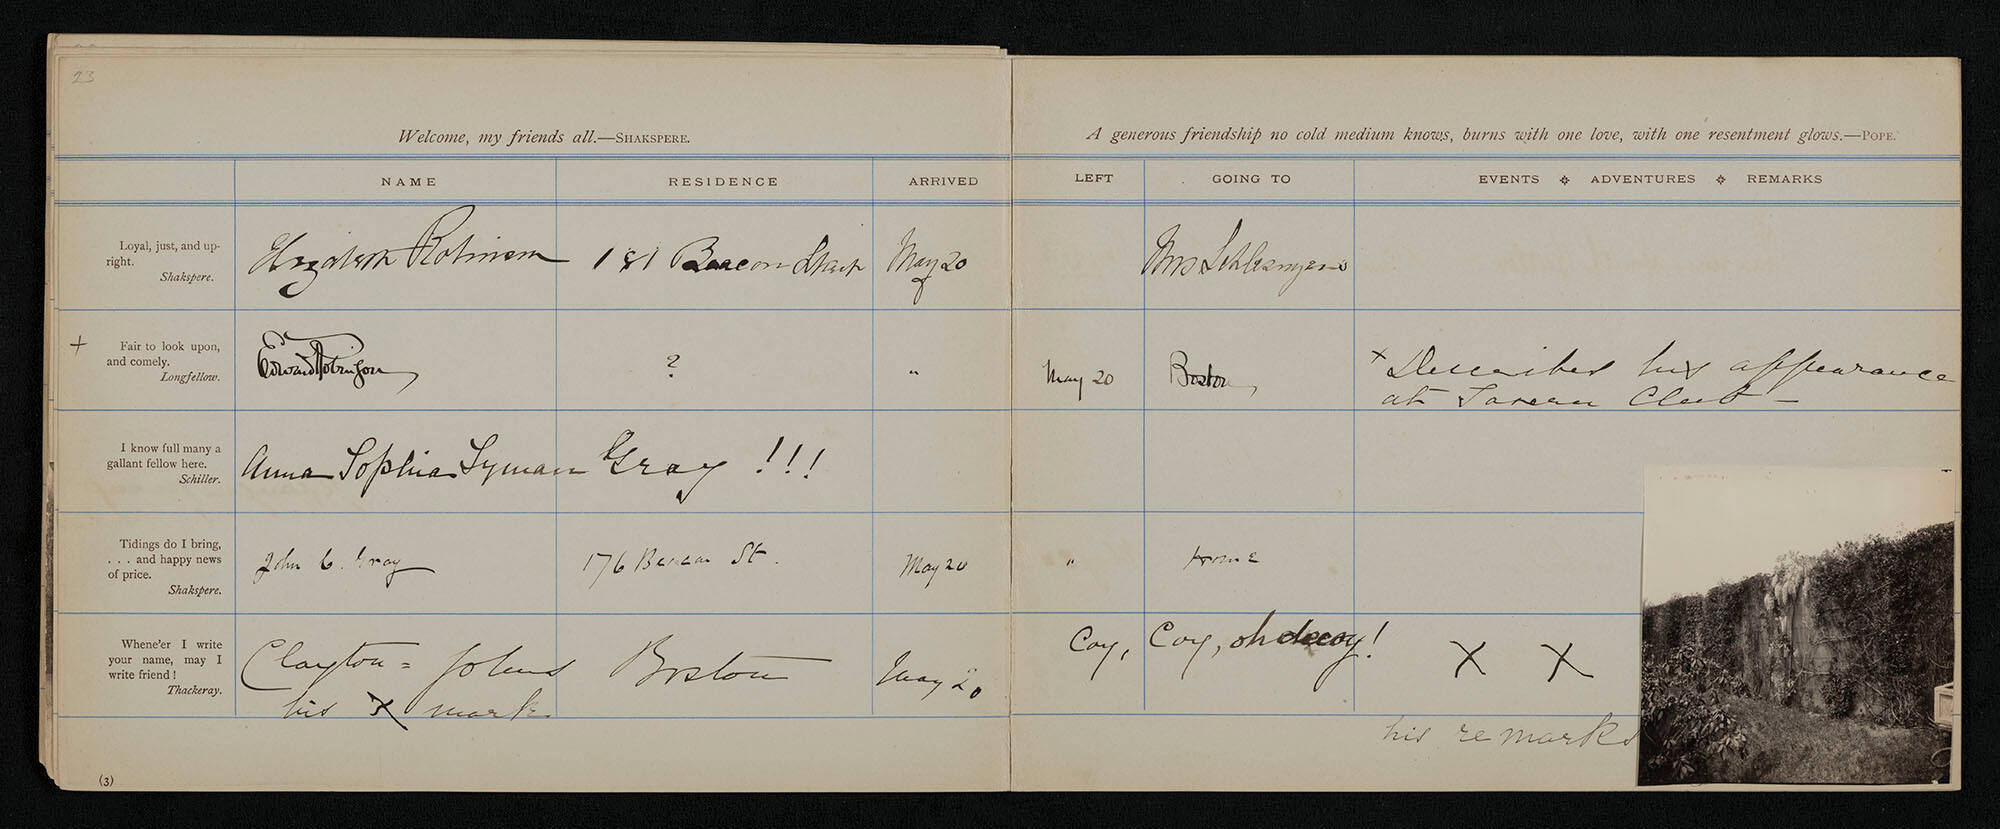 23
Welcome, my friends all.—SHAKSPERE.
A generous friendship no cold medium knows, burns with one love, with one resentment glows.—POPE.
NAME RESIDENCE ARRIVED LEFT GOING TO EVENTS ✠ ADVENTURES ✠ REMARKS
Loyal, just, and up-
right.
Shakspere.
Elizabeth Robinson 181 Beacon Street May 20 Mrs Schlesinger's
+ Fair to look upon,
and comely.
Longfellow.
Edward Robinson, ? " May 20 Boston,
x Describes his appearance
at Tavern Club —
I know full many a
gallant fellow here.
Schiller.
Anna Sophia Lyman Gray !!!
Tidings do I bring,
. . . and happy news
of price.
Shakspere.
John C. Gray 176 Beacon St. May 20 " Home
Whene'er I write
your name, may I
write friend!
Thackeray.
Clayton = Johns Boston May 20 Coy, Coy, oh decoy! X X
his X mark
his remarks
(3)